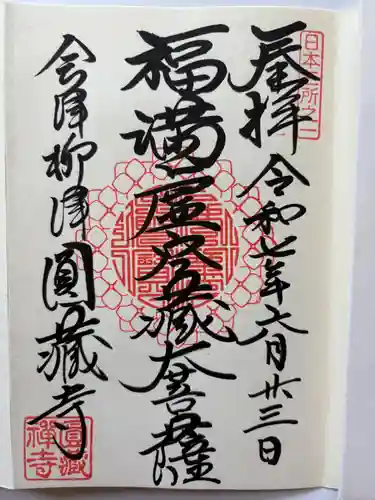 日本三所之一
奉拝 令和七年六月廿三日
福満虚空蔵大菩薩
会津柳津 圓藏寺
圓藏禅寺